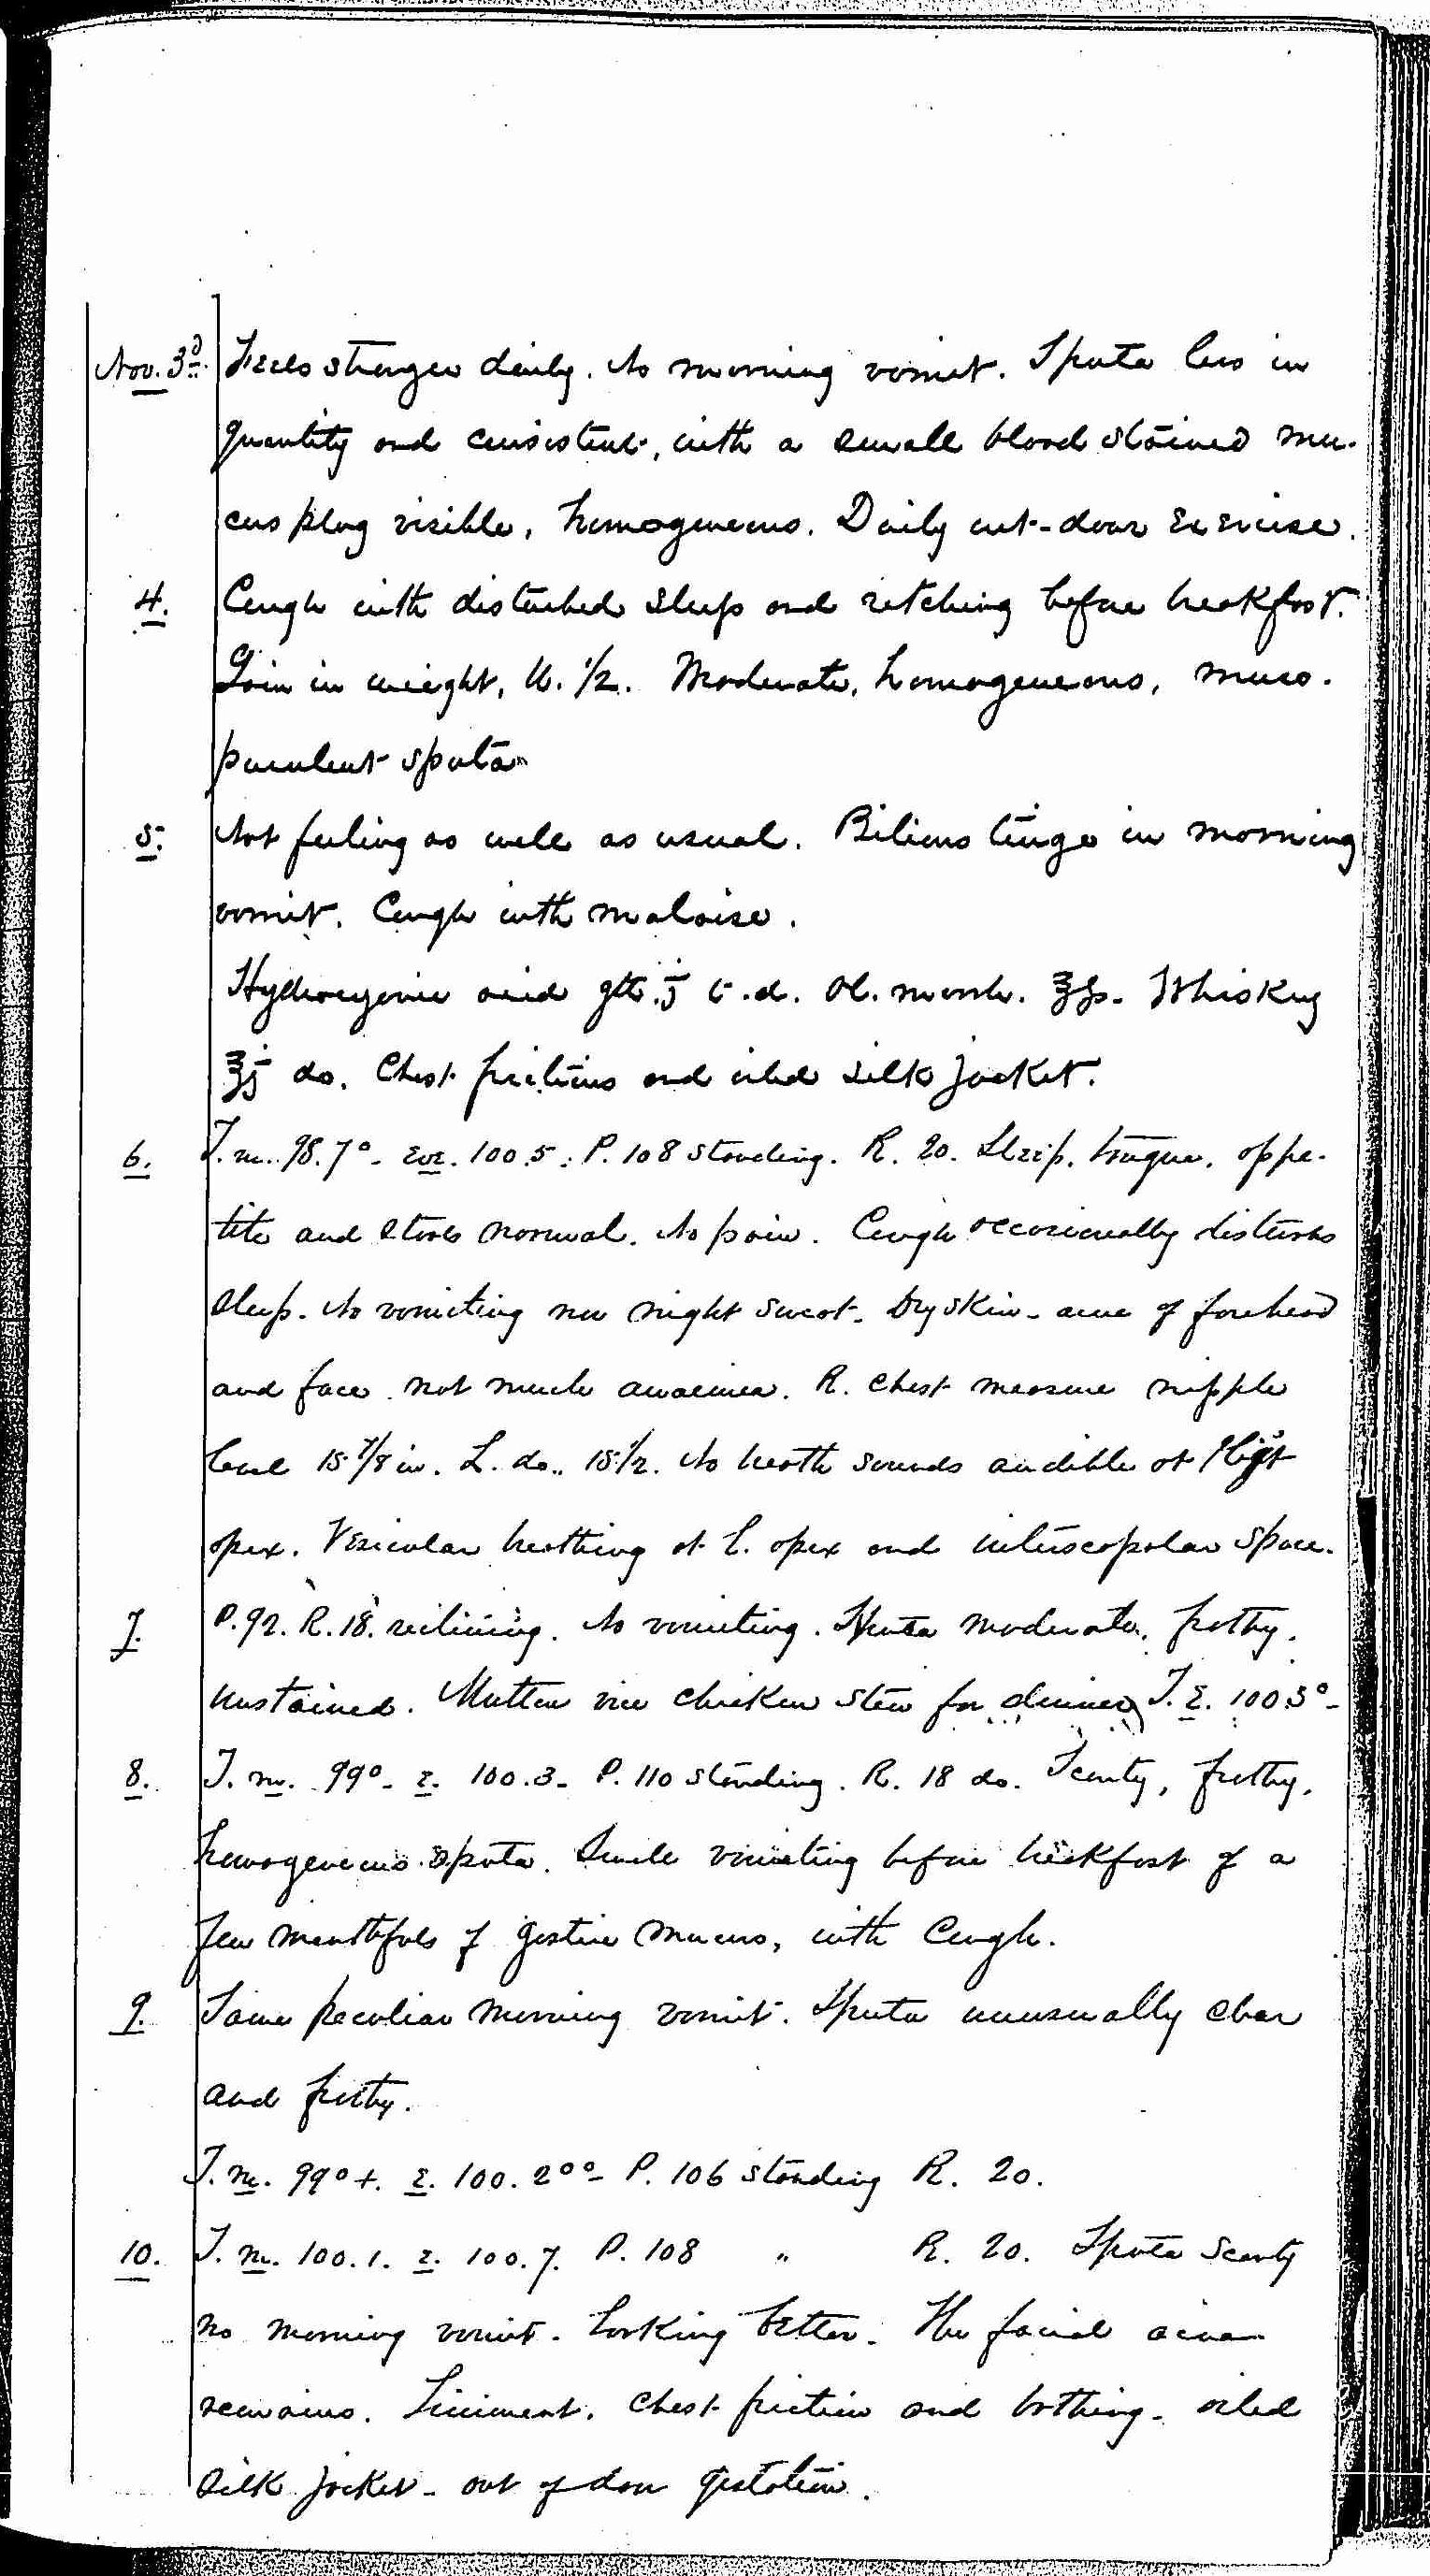 Nov. 3d. Feels stronger daily. No morning vomit. Sputa less in
quantity and consistent, with a small blood stained mu-
cus plug visible, homogeneous. Daily out-door exercise.
4. Cough with disturbed sleep and retching before breakfast.
Gain in weight, lb. 1/2. Moderate, homogeneous, muco-
purulent sputa
5. Not feeling as well as usual. Bilious tinge in morning
vomit. Cough with malaise.
Hydrocyanic acid gtt. j t.d. Ol. morrh. ℥ss. Whiskey
℥j do. Chest frictions and oiled silk jacket.
6. T. m. 98.7°- eve. 100.5. P. 108 standing. R. 20. Sleep, tongue, appe-
tite and stools normal. No pain. Cough occasionally disturbs
sleep. No vomiting nor night sweat. Dry skin - acne of forehead
and face not much anaemia. R. chest measure nipple
level 15 7/8 in. L. do. 15 1/2. No breath sounds audible at right
apex. Vesicular breathing at l. apex and interscapular space.
7. P. 92. R. 18. reclining. No vomiting. Sputa moderate, frothy,
unstained. Mutton vice chicken stew for dinner, T. E. 100.3°-
8. T. m. 99°- E. 100.3- P. 110 standing. R. 18 do. Scanty, frothy,
homogeneous sputa. Single vomiting before breakfast of a
few mouthfuls of gastric mucus, with cough.
9. Same peculiar morning vomit. Sputa unusually clear
and frothy.
T. m. 99°+. E. 100.2°°- P. 106 standing R. 20.
10. T. m. 100.1. E. 100.7. P. 108 " R. 20. Sputa scanty
no morning vomit. Looking better. The facial acne
remains. Liniment, chest friction and bathing - oiled
silk jacket - out of door gestation.